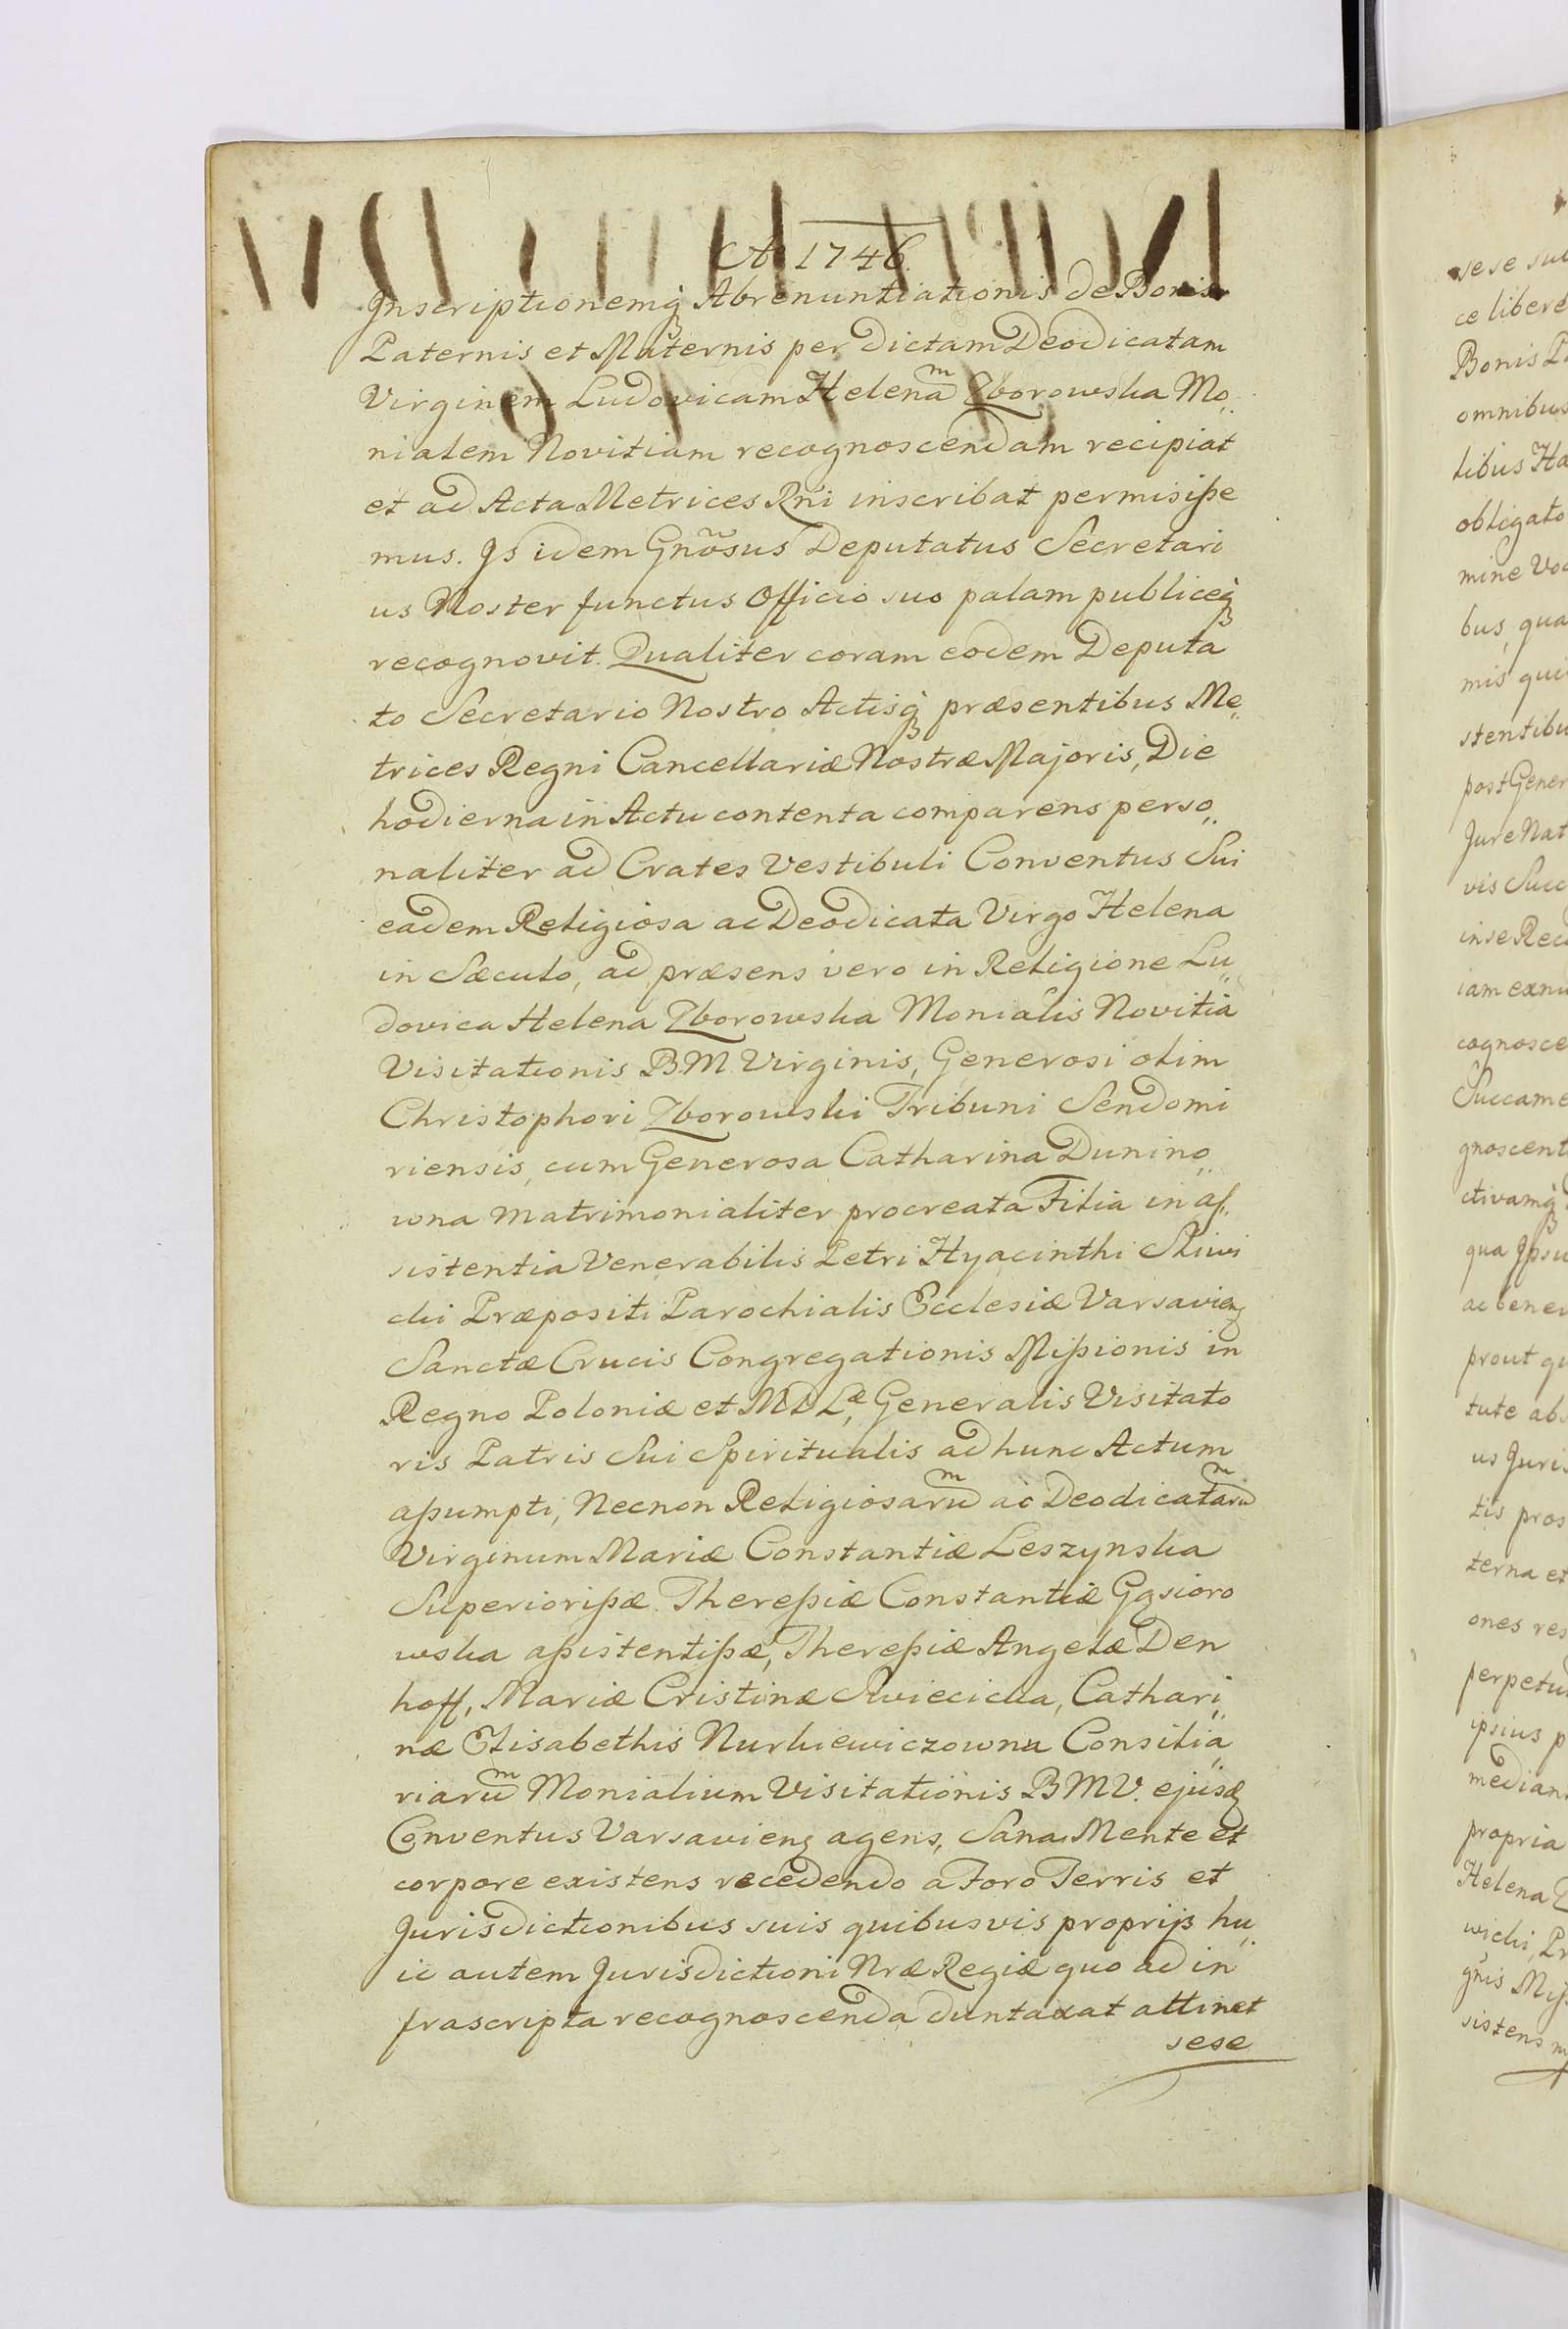 Ao 1746.
Inscriptionemq̃ Abrenuntiationis de Bonis
Paternis et Maternis per dictam Deodicatam
Virginem Ludovicam Helenam̃ Zborowska Mo„
nialem Novitiam recognoscendam recipiat
et ad Acta Metrices Rñi inscribat permisisse
mus. Is idem Gnõsus Deputatus Secretari
us Noster functus Officio suo palam publiceq̃
recognovit. Qualiter coram eodem Deputa
to Secretario Nostro Actisq̃ præsentibus Me„
trices Regni Cancellariæ Nostræ Majoris, Die
hodierna in Actu contenta comparens perso„
naliter ad Crates Vestibuli Conventus Sui
eadem Religiosa ac Deodicata Virgo Helena
in Sæculo, ad præsens vero in Religione Lu„
dovica Helena Zborowska Monialis Novitia
Visitationis B.M. Virginis, Generosi olim
Christophori Zborowski Tribuni Sendomi
riensis, cum Generosa Catharina Dunino„
wna matrimonialiter procreata Filia in as„
sistentia Venerabilis Petri Hyacinthi Sliwi
cki Præpositi Parochialis Ecclesiæ Varsavien̄
Sanctæ Crucis Congregationis Missionis in
Regno Poloniæ et M D Læ, Generalis Visitato
ris Patris Sui Spiritualis ad hunc Actum
assumpti, Necnon Religiosarum̃ ac Deodicatarum̃
Virginum Mariæ Constantiæ Leszynska
Superiorissæ Theressiæ Constantiæ Gąsioro
wska assistentissæ, Theressiæ Angelæ Den
hoff, Mariæ Cristinæ Swiecicka, Cathari„
næ Elisabethis Nurkiewiczowna Consilia„
riarum̃ Monialium Visitationis B M V. ejusq̃
Conventus Varsavien̄ agens, Sana Mente et
corpore existens recedendo a Foro Terris et
Jurisdictionibus suis quibusvis proprijs hu„
ic autem Jurisdictioni Nræ Regiæ quo ad in
frascripta recognoscenda duntaxat attinet
sese
sese
ce libere
Bonis
omnibus
obligato
mine
mis
stentibu
post Gener
Jure Nat
vis Succ
in se
cognosce
gnoscent
ctivamq̃
prout
tute
us
tis
terna et
ones
perpetu
ipsius
propria
Helena
gñis
sistens